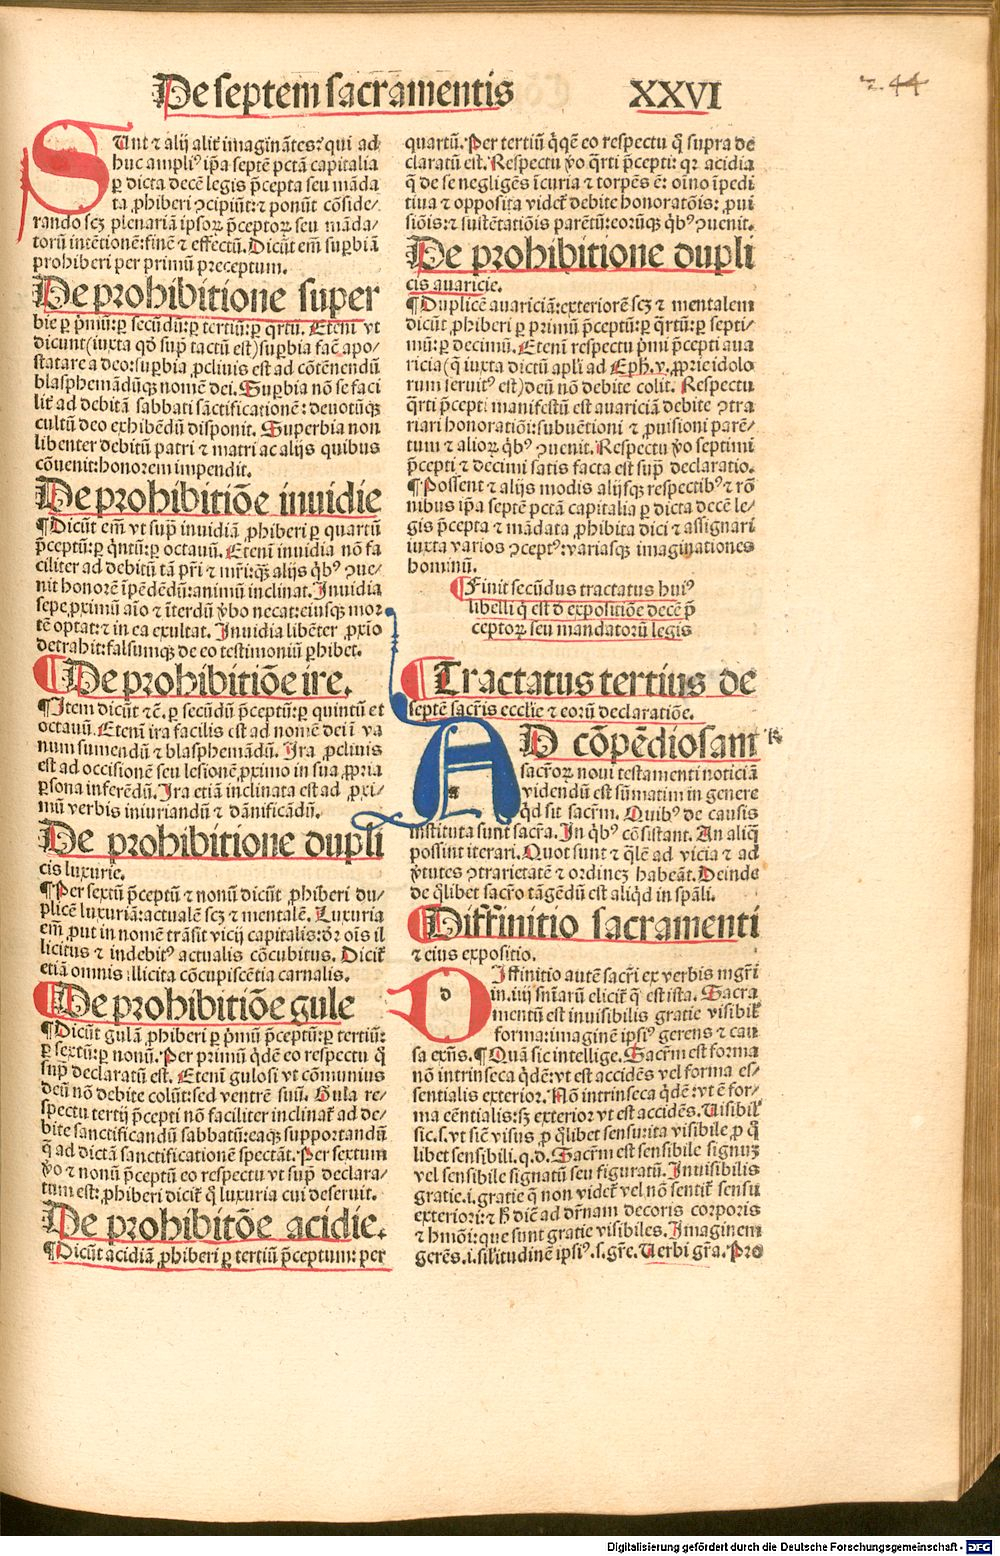 De septem sacramentis
XXVI
2. 44
SUnt ⁊ alij alit̃ imaginãtes: qui ad
huc ampliꝰ ip̃a septẽ pctã capitalia
ꝑ dicta decẽ legis p̃cepta seu mãda
ta ꝓhiberi ꝯcipiũt: ⁊ ponũt cõside/
rando scꝫ plenariã ipsoꝝ p̃ceptoꝝ seu mãda/
torũ intẽtionẽ: finẽ ⁊ effectũ. Dicũt em̃ supbiã
prohiberi per primũ preceptum.
De prohibitione super
bie ꝑ p̃mũ: ꝑ secũdũ: ꝑ tertiũ: ꝑ qrtu. Eteni vt
dicunt (iuxta qđ sup̃ tactũ est) supbia facẽ apo/
statare a deo: supbia ꝓcliuis est ad cõtẽnendũ
blasphemãdũqꝫ nomẽ dei. Supbia nõ se faci
lit̃ ad debitã sabbati sãctificationẽ: deuotũqꝫ
cultũ deo exhibẽdũ disponit. Superbia non
libenter debitũ patri ⁊ matri ac alijs quibus
cõuenit: honorem impendit.
De prohibitiõe inuidie
¶ Dicũt em̃ vt sup̃ inuidiã ꝓhiberi ꝑ quartũ
p̃ceptũ: ꝑ q̃ntũ: ꝑ octauũ. Etenĩ inuidia nõ fa
ciliter ad debitũ tã pr̃i ⁊ mr̃i: qꝫ alijs qb̃ꝰ ꝯue/
nit honorẽ ĩpẽdẽdũ: animũ inclinat. Inuidia
sepe ꝓximũ aĩo ⁊ ĩterdũ ṽbo necat: eiusqꝫ mor
tẽ optat: ⁊ in ea exultat. Inuidia libẽter ꝓxĩo
detrahit: falsumqꝫ de eo testimoniũ ꝑhibet.
¶ De prohibitiõe ire.
¶ Item dicũt ⁊c̃. ꝑ secũdũ p̃ceptũ: ꝑ quintũ et
octauũ. Etenĩ ira facilis est ad nomẽ dei ĩ va
num sumendũ ⁊ blasphemãdũ. Ira ꝓcliuis
est ad occisionẽ seu lesionẽ ꝓximo in sua ꝓpria
ꝑsona inferẽdũ. Ira etiã inclinata est ad ꝓxi/
mũ verbis iniuriandũ ⁊ dãnificãdũ.
De prohibitione dupli
cis luxurie.
¶ Per sextũ p̃ceptũ ⁊ nonũ dicũt ꝓhiberi du/
plicẽ luxuriã: actualẽ scꝫ ⁊ mentalẽ. Luxuria
em̃ ꝓut in nomẽ trãsit vicij capitalis: dr̃ oĩs il
licitus ⁊ indebitꝰ actualis cõcubitus. Dicit̃
etiã omnis illicita cõcupiscẽtia carnalis.
¶ De prohibitiõe gule
¶ Dicũt gulã ꝓhiberi ꝑ p̃mũ p̃ceptũ: ꝑ tertiũ:
ꝑ sextũ: ꝑ nonũ. Per primũ q̃dẽ eo respectu q̃
sup̃ declaratũ est. Etenĩ gulosi vt cõmunius
deũ nõ debite colũt: sed ventrẽ suũ. Gula re/
spectu tertij p̃cepti nõ faciliter inclinat̃ ad de/
bite sanctificandũ sabbatũ: eaqꝫ supportandũ
q̃ ad dictã sanctificationẽ spectãt. Per sextum
ṽo ⁊ nonũ p̃ceptũ eo respectu vt sup̃ declara/
tum est: ꝓhiberi dicit̃ q̃ luxuria cui deseruit.
De prohibitõe acidie.
¶ Dicũt acidiã ꝓhiberi ꝑ tertiũ p̃ceptum: per
quartũ. Per tertiũ q̃qẽ eo respectu q̃ supra de
claratũ est. Respectu ṽo q̃rti p̃cepti: qꝛ acidia
q̃ de se negligẽs ĩcuria ⁊ torpẽs ẽ: oĩno ĩpedi
tiua ⁊ opposita videt̃ debite honoratõis: ꝓui
siõis: ⁊ sustẽtatiõis parẽtũ: eorũqꝫ qb̃ꝰ ꝯuenit.
De prohibitione dupli
cis auaricie.
¶ Duplicẽ auariciã: exteriorẽ scꝫ ⁊ mentalem
dicũt ꝓhiberi ꝑ primũ p̃ceptũ: ꝑ q̃rtũ: ꝑ septi/
mũ: ꝑ decimũ. Etenĩ respectu p̃mi p̃cepti aua
ricia (q̃ iuxta dictũ apl̃i ad Eph̃. v. ꝓprie idolo
rum seruitꝰ est) deũ nõ debite colit. Respectu
q̃rti p̃cepti manifestũ est auariciã debite ꝯtra
riari honoratiõi: subuẽtioni ⁊ ꝓuisioni parẽ/
tum ⁊ alioꝝ qb̃ꝰ ꝯuenit. Respectu ṽo septimi
p̃cepti ⁊ decimi satis facta est sup̃ declaratio.
¶ Possent ⁊ alijs modis alijsqꝫ respectibꝰ ⁊ rõ
nibus ip̃a septẽ pctã capitalia ꝑ dicta decẽ le/
gis p̃cepta ⁊ mãdata ꝓhibita dici ⁊ assignari
iuxta varios ꝯceptꝰ: variasqꝫ imaginationes
hominũ.
¶ Finit secũdus tractatus huiꝰ
libelli q̃ est d̃ expositiõe decẽ p̃
ceptoꝝ seu mandatorũ legis
¶ Tractatus tertius de
septẽ sacr̃is ecclie ⁊ eorũ declaratiõe.
AD cõpẽdiosam
sacr̃oꝝ noui testamenti noticiã
videndũ est sũmatim in genere
q̃d sit sacr̃m. Quibꝰ de causis
instituta sunt sacr̃a. In qb̃ꝰ cõsistant. An aliq̃
possint iterari. Quot sunt ⁊ q̃lẽ ad vicia ⁊ ad
ṽtutes ꝯtrarietatẽ ⁊ ordinez habeãt. Deinde
de q̃libet sacr̃o tãgẽdũ est aliq̃d in sp̃ali.
¶ Diffinitio sacramenti
⁊ eius expositio.
DIffinitio autẽ sacr̃i ex verbis mgr̃i
in .iiij sñiarũ elicit̃ q̃ est ista. Sacra
mentũ est inuisibilis gratie visibil̃
forma: imaginẽ ipsiꝰ gerens ⁊ cau
sa exñs. ¶ Quã sic intellige. Sacr̃m est forma
nõ intrinseca q̃dẽ: vt est accidẽs vel forma es/
sentialis exterior. Nõ intrinseca q̃dẽ: vt ẽ for/
ma eẽntialis: sꝫ exterior vt est accidẽs. Uisibil̃
sic .s. vt siẽ visus ꝓ q̃libet sensu: ita visibile ꝓ q̃
libet sensibili. q.d. Sacr̃m est sensibile signuꝫ
vel sensibile signatũ seu figuratũ. Inuisibilis
gratie .i. gratie q̃ non videt̃ vel nõ sentit̃ sensu
exteriori: ⁊ h̃ dicẽ ad dr̃nam decoris corporis
⁊ hmõi: que sunt gratie visibiles. Imaginem
gerẽs .i. sil̃itudinẽ ipsiꝰ .s. gr̃e. Uerbi gr̃a. Pro
Digitalisierung gefördert durch die Deutsche Forschungsgemeinschaft - DFG